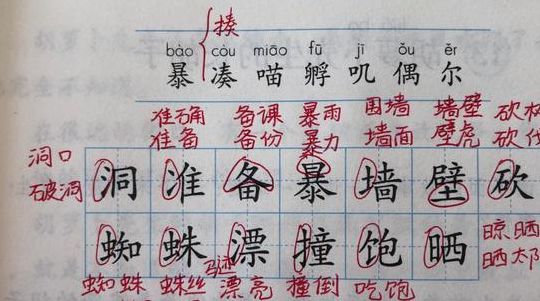 揍
bào còu miāo fū jī ǒu ěr
暴 凑 喵 孵 叽 偶 尔
准确 备课 暴雨 围墙 墙壁 砍
准备 备份 暴力 墙面 壁虎 砍伐
洞口
破洞
洞 准 备 暴 墙 壁 砍
蜘 蛛 漂 撞 饱 晒
晾晒
晒太阳
蜘蛛 蛛丝 漂亮 撞倒 吃饱